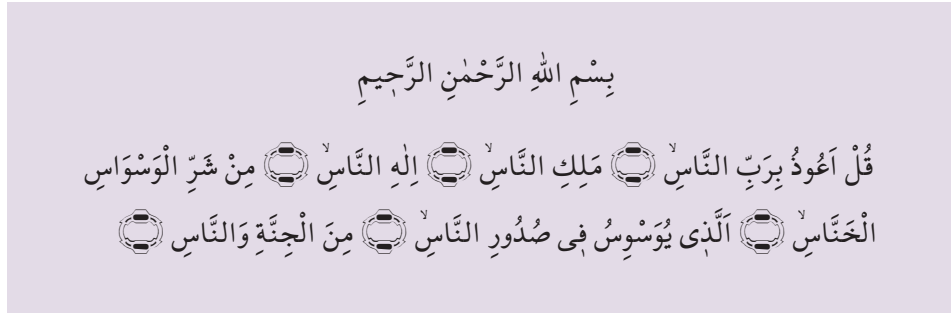 بِسْمِ اللّٰهِ الرَّحْمٰنِ الرَّح۪يمِ
قُلْ اَعُوذُ بِرَبِّ النَّاسِۙ ۝ مَلِكِ النَّاسِۙ ۝ اِلٰهِ النَّاسِۙ ۝ مِنْ شَرِّ الْوَسْوَاسِ
الْخَنَّاسِۙ ۝ اَلَّذ۪ى يُوَسْوِسُ ف۪ى صُدُورِ النَّاسِۙ ۝ مِنَ الْجِنَّةِ وَالنَّاسِ ۝